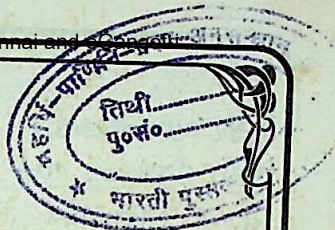 nnai and eGangotri
महर्षि-पाणिनि
तिथी..............
पु०सं०..............
* भारती पुस्त